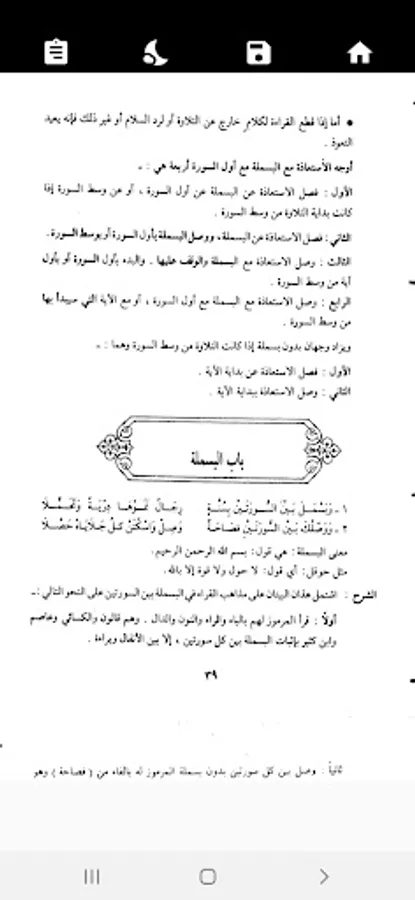 • أما إذا قطع القراءة لكلام خارج عن التلاوة أو لرد السلام أو غير ذلك فإنه يعيد
التعوذ .
أوجه الأستعاذة مع البسملة مع أول السورة أربعة هي : -
الأول : فصل الاستعاذة عن البسملة عن أول السورة ، أو عن وسط السورة إذا
كانت بداية التلاوة من وسط السورة .
الثاني : فصل الاستعاذة عن البسملة ، ووصل البسملة بأول السورة أو بوسط السورة .
الثالث : وصل الاستعاذة مع البسملة والوقف عليها . والبدء بأول السورة أو بأول
آية من وسط السورة .
الرابع : وصل الاستعاذة مع البسملة مع أول السورة ، أو مع الآية التي سيبدأ بها
من وسط السورة .
ويزاد وجهان بدون بسملة إذا كانت التلاوة من وسط السورة وهما : -
الأول : فصل الاستعاذة عن بداية الآية .
الثاني : وصل الاستعاذة ببداية الآية .
باب البسملة
١ - وَبَسْمَلَ بَيْنَ السُّورَتَيْنِ بِسُنَّةٍ رِجَالٌ نَمَوْهَا دِرْيَةً وَتَحَمُّلَا
٢ - وَوَصْلُكَ بَيْنَ السُّورَتَيْنِ فَصَاحَةٌ وَصِلْ وَاسْكُتَنْ كُلٌّ جَلَايَاهُ حَصَّلَا
معنى البسملة : هي قول : بسم الله الرحمن الرحيم .
مثل حوقل : أي قول : لا حول ولا قوة إلا بالله .
الشرح : اشتمل هذان البيتان على مذاهب القراء في البسملة بين السورتين على النحو التالي : -
أولاً : قرأ المرموز لهم بالباء والراء والنون والدال . وهم قالون والكسائي وعاصم
وابن كثير بإثبات البسملة بين كل سورتين ، إلا بين الأنفال وبراءة .
٣٩
ثانياً : وصل بين كل سورتين بدون بسملة المرموز له بالفاء من ( فصاحة ) وهو